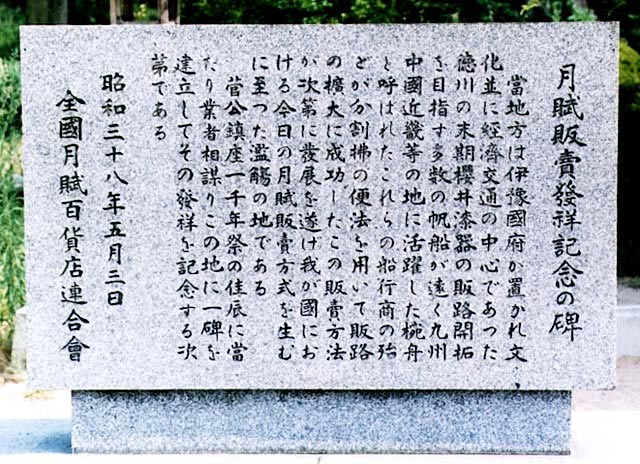 月賦販賣發祥記念の碑
當地方は伊豫國府が置かれ文
化並に經濟交通の中心であつた
德川の末期櫻井漆器の販路開拓
を目指す多数の帆船が遠く九州
中國近畿等の地に活躍した椀舟
と呼ばれたこれらの船行商の殆
どが分割拂の便法を用いて販路
の擴大に成功したこの販賣方法
が次第に發展を遂げ我が國にお
ける今日の月賦販賣方式を生む
に至つた濫觴の地である
菅公鎮座一千年祭の佳辰に當
たり業者相謀りこの地に一碑を
建立してその發祥を記念する次
第である
昭和三十八年五月三日
全國月賦百貨店連合會